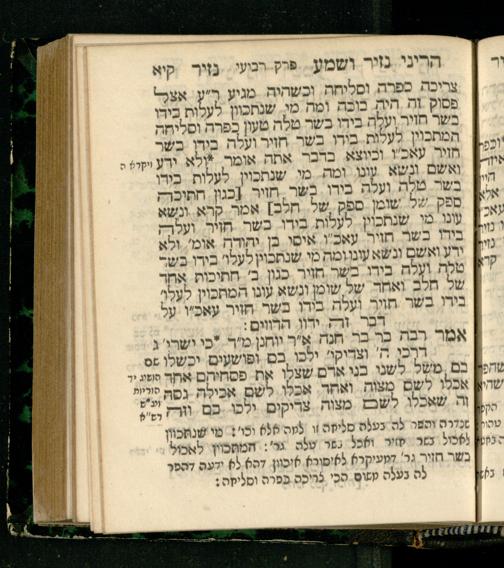 הריני נזיר ושמע פרק רביעי נזיר קיא
צריכה כפרה וסליחה וכשהיה מגיע ר"ע אצל
פסוק זה היה בוכה ומה מי שנתכוון לעלות בידו
בשר חזיר ועלה בידו בשר טלה טעון כפרה וסליחה
המתכוין לעלות בידו בשר חזיר ועלה בידו בשר
חזיר עאכ"ו וכיוצא בדבר אתה אומר *ולא ידע
ואשם ונשא עונו ומה מי שנתכוין לעלות בידו
בשר טלה ועלה בידו בשר חזיר [כגון חתיכה
ספק של שומן ספק של חלב] אמר קרא ונשא
עונו מי שנתכוין לעלות בידו בשר חזיר ועלה
בידו בשר חזיר עאכ"ו איסי בן יהודה אומ' ולא
ידע ואשם ונשא עונו ומה מי שנתכוין לעלו' בידו בשר
טלה ועלה בידו בשר חזיר כגון ב' חתיכות אחד
של חלב ואחד של שומן ונשא עונו המתכוין לעלו'
בידו בשר חזיר ועלה בידו בשר חזיר עאכ"ו על
דבר זה ידוו הדווים:
אמר רבה בר בר חנה א"ר יוחנן מ"ד *כי ישרי'
דרכי ה' וצדיקי' ילכו בם ופושעים יכשלו
בם משל לשני בני אדם שצלו את פסחיהם אחד
אכלו לשם מצוה ואחד אכלו לשם אכילה גסה
זה שאכלו לשם מצוה צדיקים ילכו בם וזה
שנדרה והפר לה בעלה סליחה זו למה אלא וכו': מי שנתכוון
לאכול בשר חזיר ואכל בשר טלה גר': המתכוון לאכול
בשר חזיר גר' דמעיקרא לאיסורא איכוון דהא לא ידעה דהפר
לה בעלה משום הכי צריכה כפרה וסליחה:
ויקרא ה